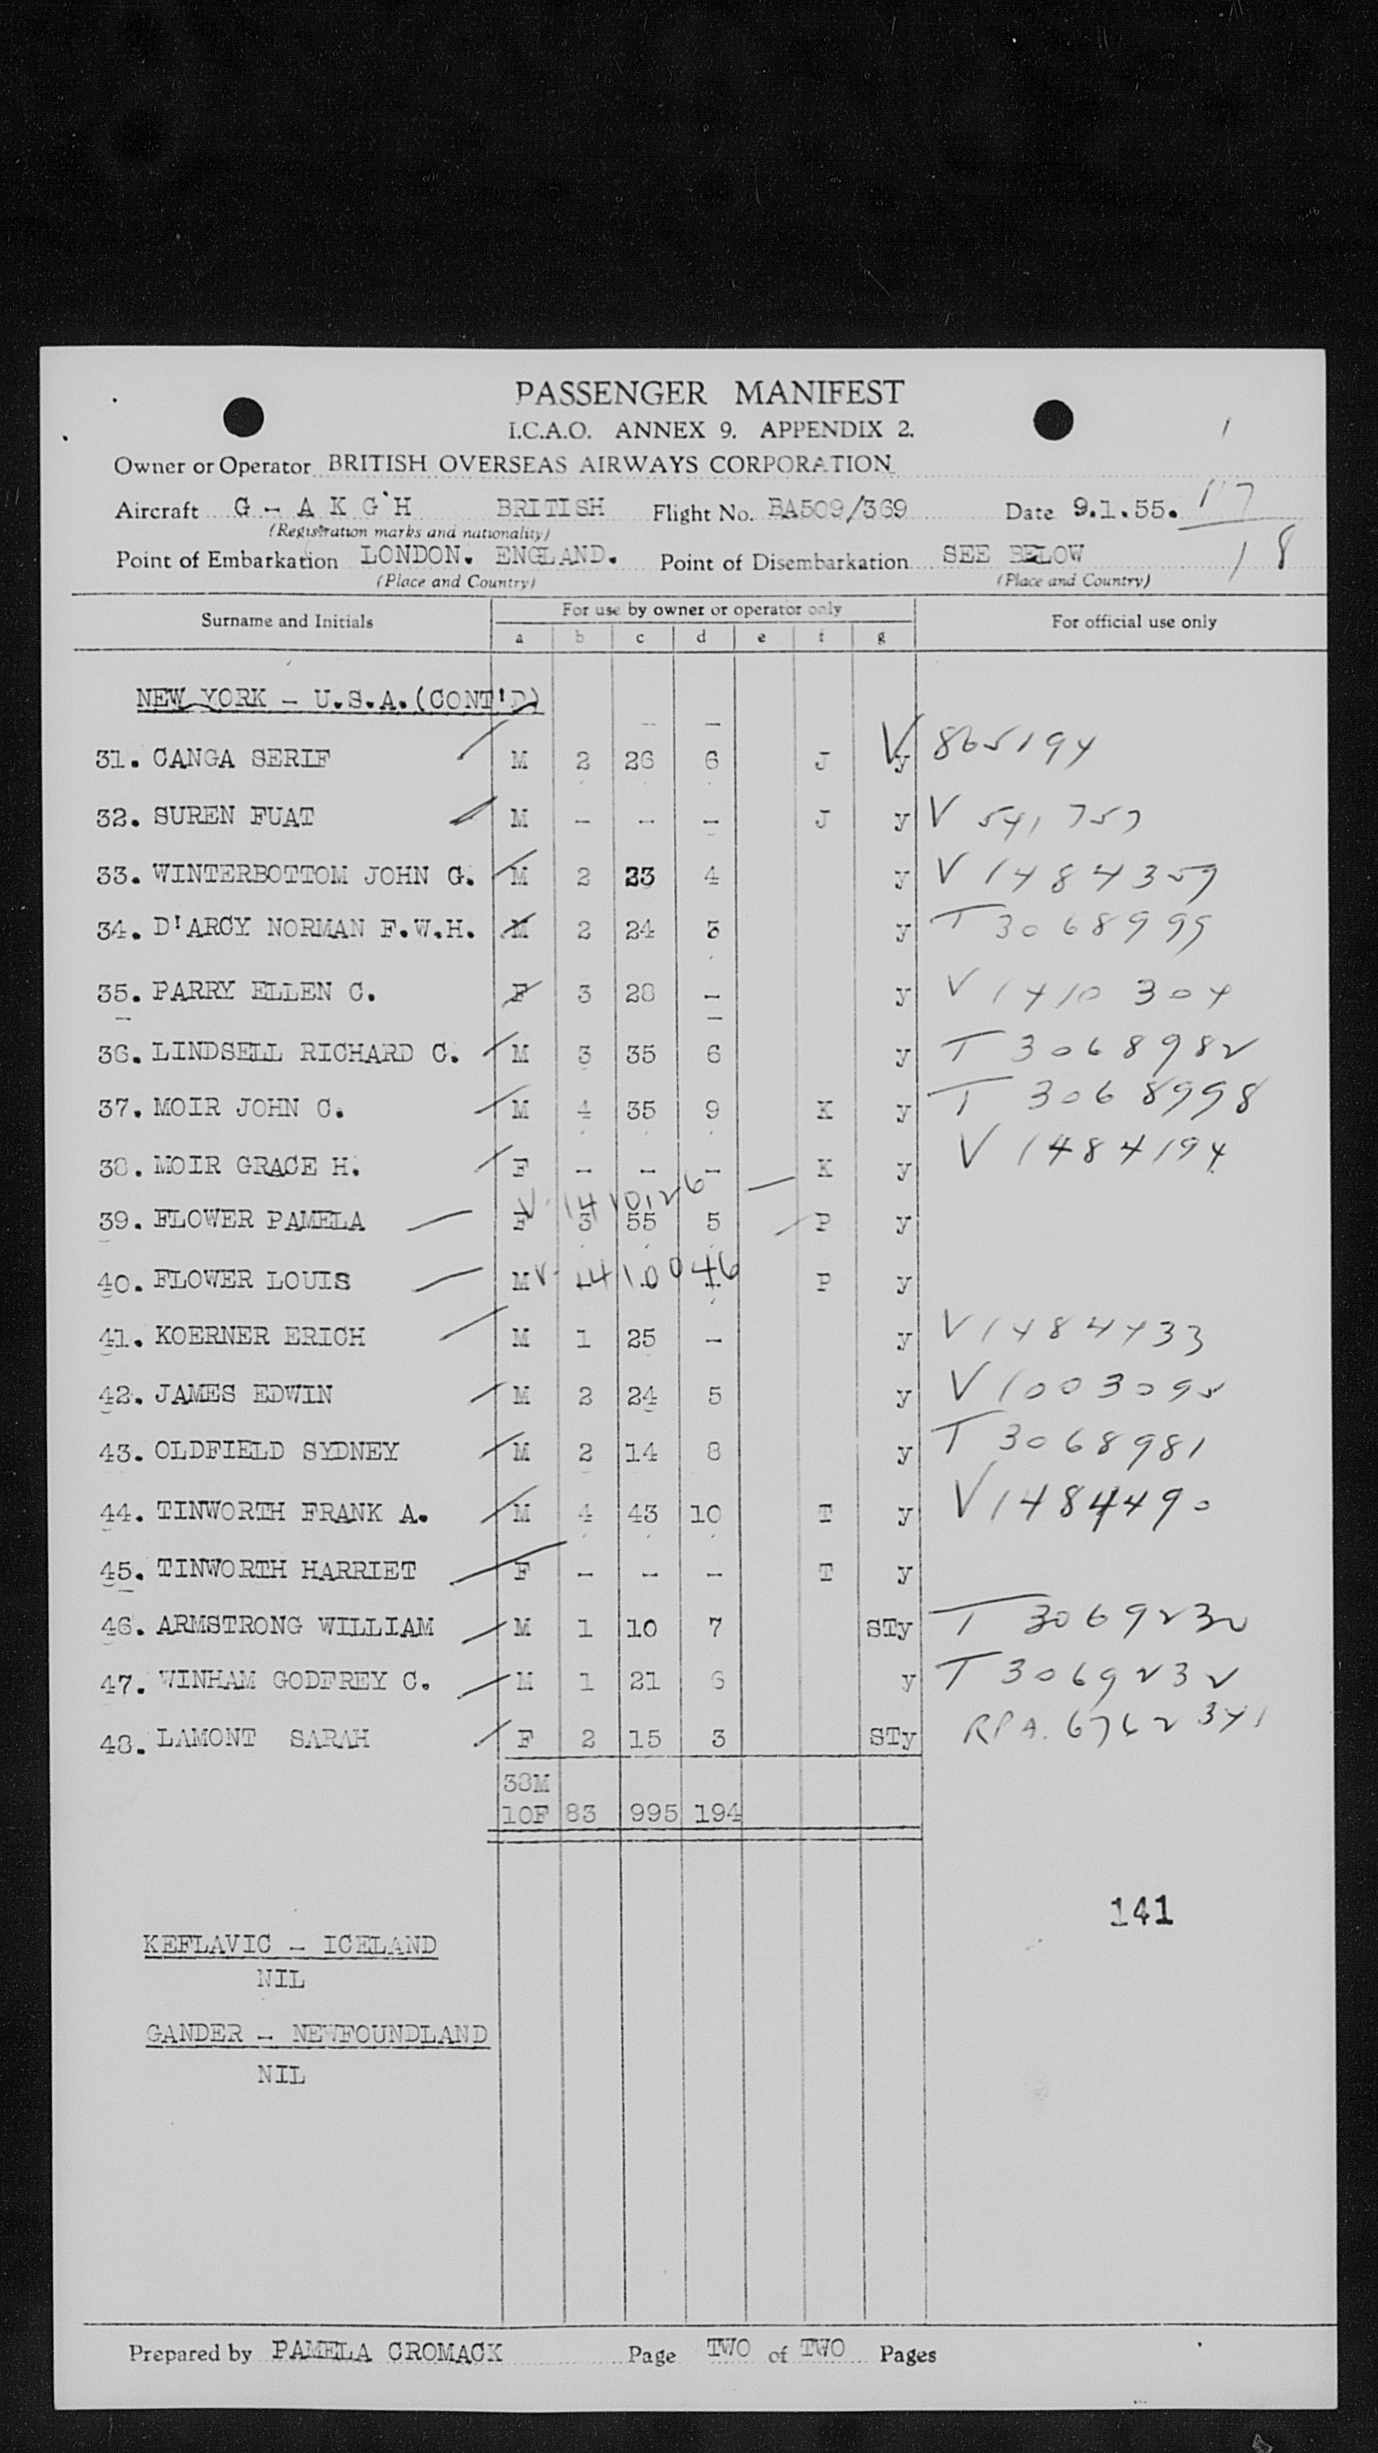 PASSENGER MANIFEST
I.C.A.O. ANNEX 9. APPENDIX 2.
Owner or Operator BRITISH OVERSEAS AIRWAYS CORPORATION
Aircraft G - A K G H BRITISH Flight No. BA509/369 Date 9.1.55. 17
(Registration marks and nationality)
Point of Embarkation LONDON. ENGLAND. Point of Disembarkation SEE BELOW 18
(Place and Country) (Place and Country)
Surname and Initials For use by owner or operator only For official use only
a b c d e f g
NEW YORK - U.S.A.(CONT'D)
31. CANGA SERIF M 2 26 6 J y V 865194
32. SUREN FUAT M - - - J y V 541757
33. WINTERBOTTOM JOHN G. M 2 23 4 y V 1484359
34. D'ARCY NORMAN F.W.H. M 2 24 3 y T 3068999
35. PARRY ELLEN C. F 3 28 - y V 1410304
36. LINDSELL RICHARD C. M 3 35 6 y T 3068982
37. MOIR JOHN C. M 4 35 9 K y T 3068998
38. MOIR GRACE H. F - - - K y V 1484194
V-1410126
39. FLOWER PAMELA F 3 55 5 P y
40. FLOWER LOUIS M V-1410046 P y
41. KOERNER ERICH M 1 25 - y V1484433
42. JAMES EDWIN M 2 24 5 y V1003095
43. OLDFIELD SYDNEY M 2 14 8 y T 3068981
44. TINWORTH FRANK A. M 4 43 10 T y V1484490
45. TINWORTH HARRIET F - - - T y
46. ARMSTRONG WILLIAM M 1 10 7 STy T 3069230
47. WINHAM GODFREY C. M 1 21 6 y T 3069232
48. LAMONT SARAH F 2 15 3 STy RPA. 6762341
38M
10F 83 995 194
141
KEFLAVIC - ICELAND
NIL
GANDER - NEWFOUNDLAND
NIL
Prepared by PAMELA CROMACK Page TWO of TWO Pages